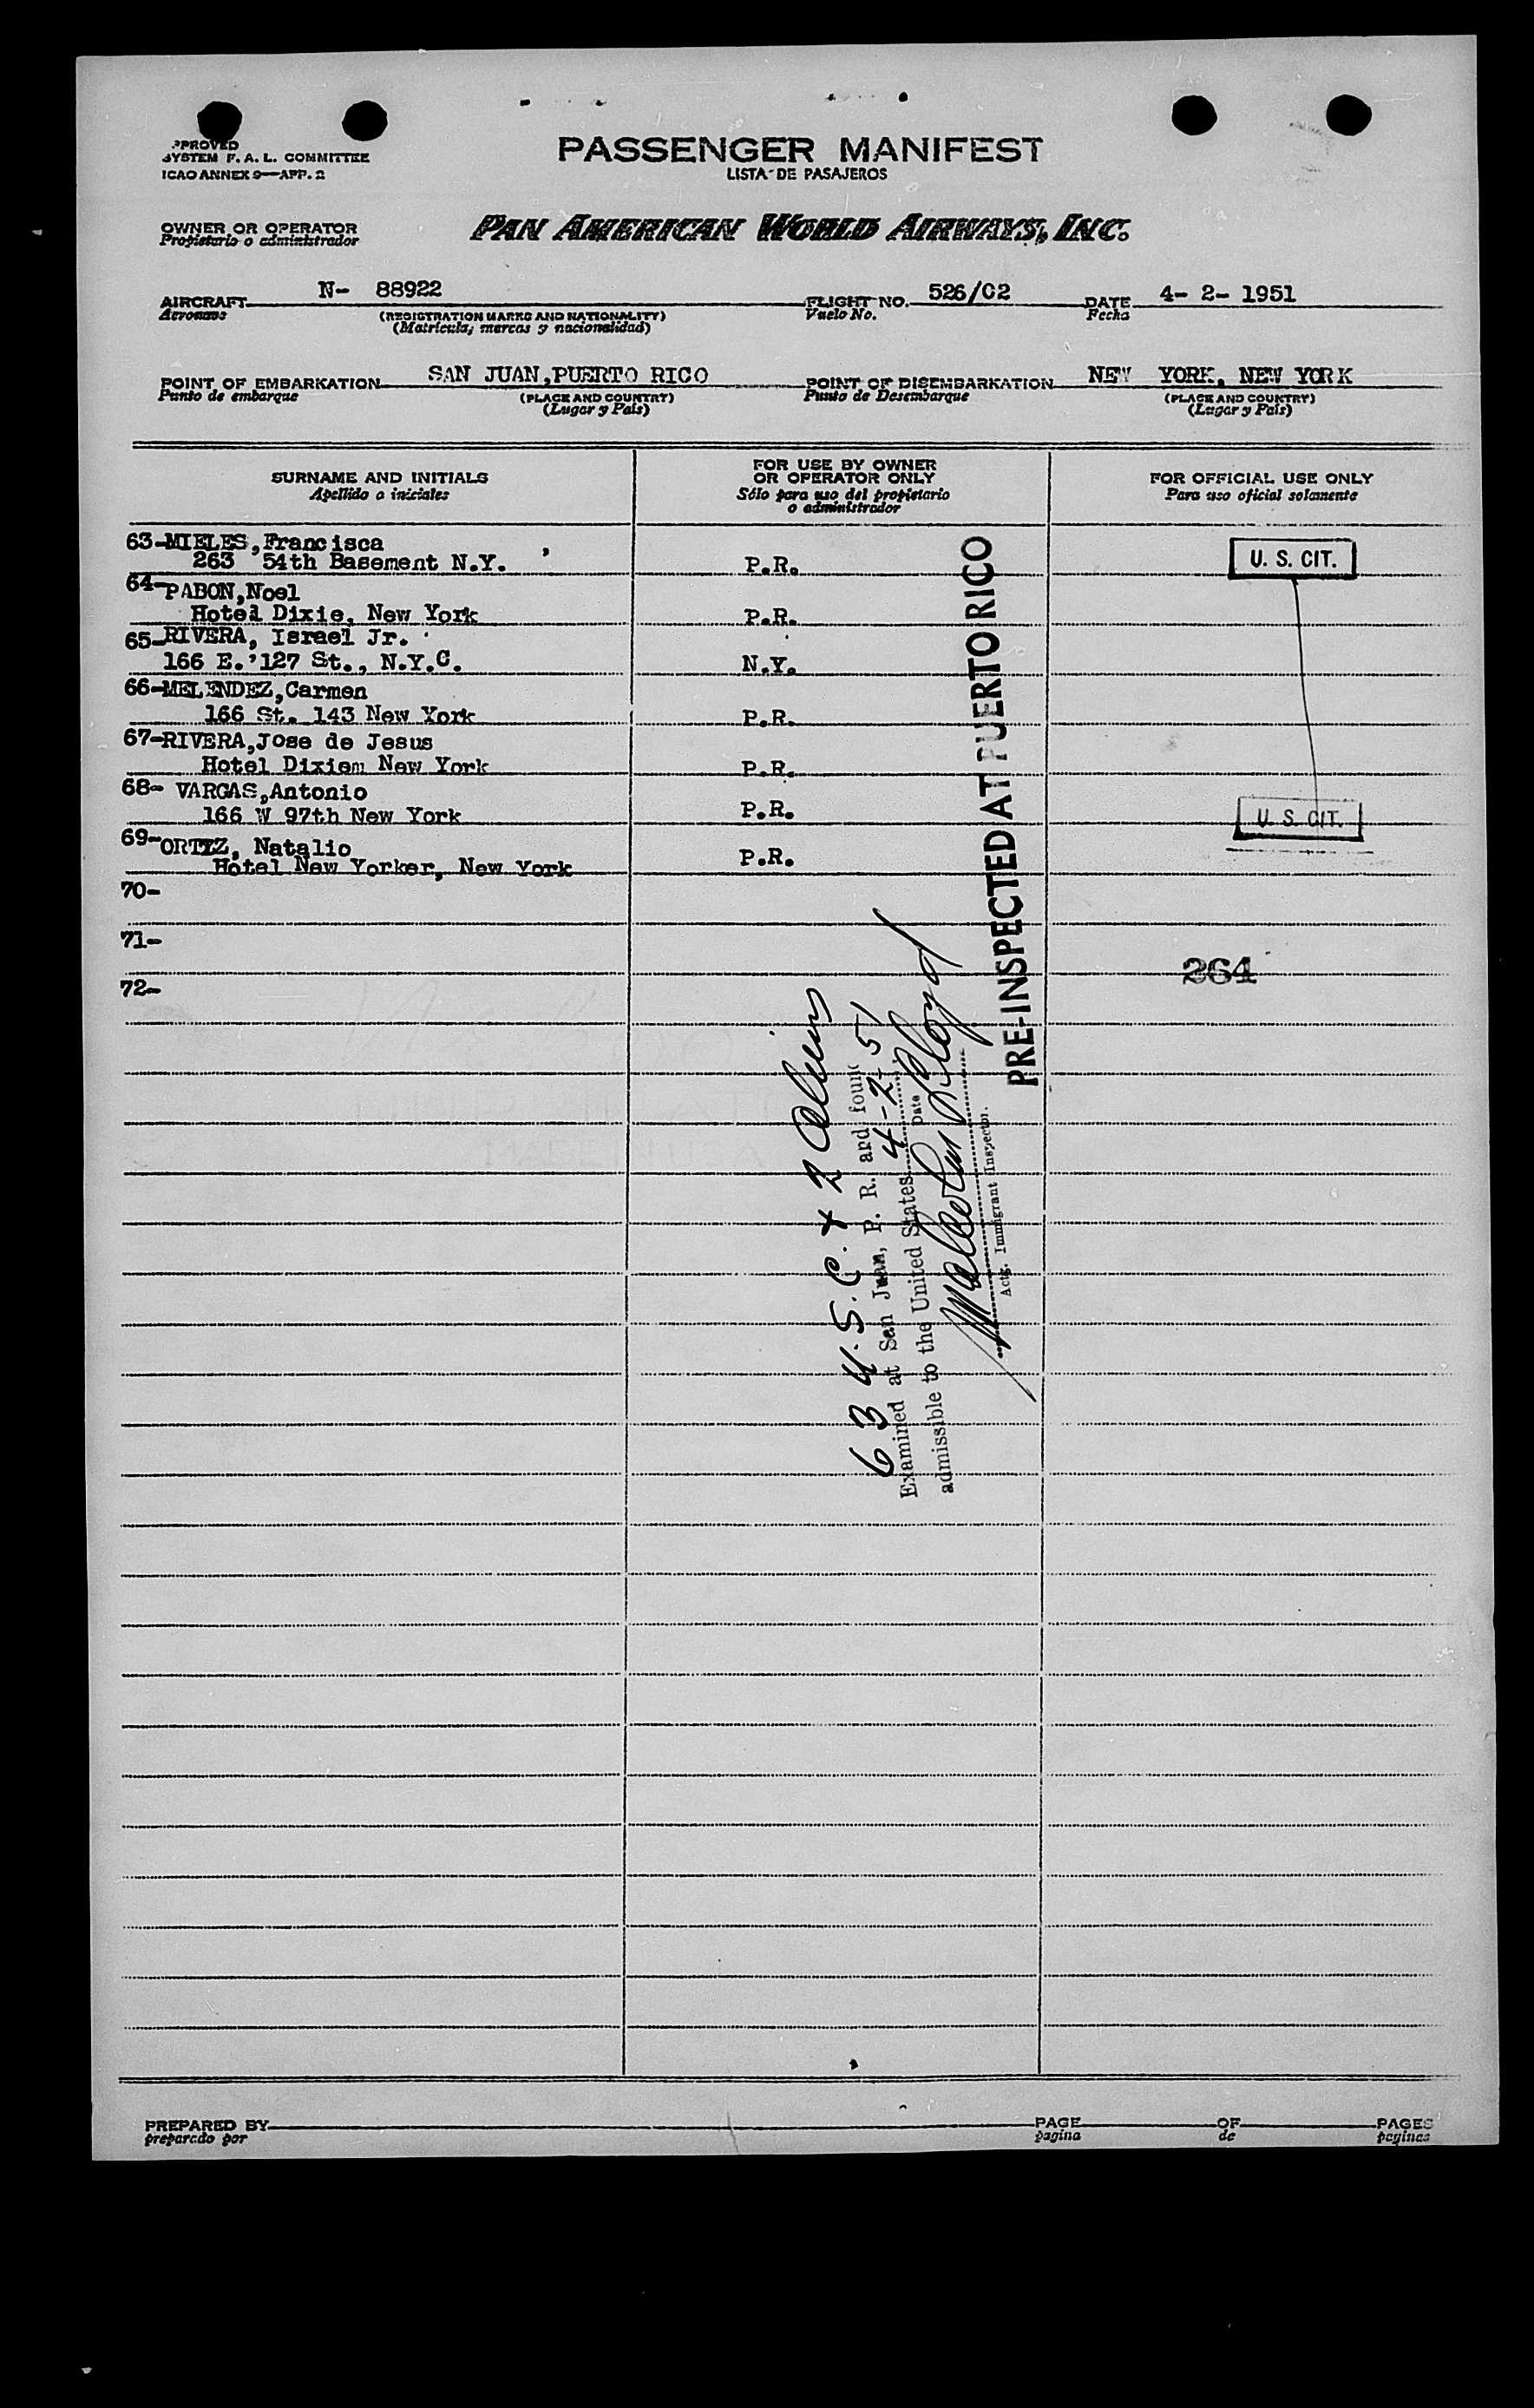 PPROVED
SYSTEM F. A. L. COMMITTEE
ICAO ANNEX 9—APP. 2
PASSENGER MANIFEST
LISTA DE PASAJEROS
OWNER OR OPERATOR
Propietario o administrador
PAN AMERICAN WORLD AIRWAYS, INC.
AIRCRAFT N- 88922
Aeronave
(REGISTRATION MARKS AND NATIONALITY)
(Matrícula, marcas y nacionalidad)
FLIGHT NO. 526/02
Vuelo No.
DATE 4- 2- 1951
Fecha
POINT OF EMBARKATION SAN JUAN,PUERTO RICO
Punto de embarque
(PLACE AND COUNTRY)
(Lugar y País)
POINT OF DISEMBARKATION NEW YORK, NEW YORK
Punto de Desembarque
(PLACE AND COUNTRY)
(Lugar y País)
SURNAME AND INITIALS
Apellido o iniciales
FOR USE BY OWNER
OR OPERATOR ONLY
Sólo para uso del propietario
o administrador
FOR OFFICIAL USE ONLY
Para uso oficial solamente
63-MIELES,Francisca
263 54th Basement N.Y. P.R. U. S. CIT.
64-PABON,Noel
Hotel Dixie, New York P.R.
65-RIVERA, Israel Jr.
166 E.'127 St., N.Y.C. N.Y.
66-MELENDEZ,Carmen
166 St. 143 New York P.R.
67-RIVERA,Jose de Jesus
Hotel Dixiem New York P.R.
68- VARGAS,Antonio
166 W 97th New York P.R. U. S. CIT.
69-ORTIZ, Natalio
Hotel New Yorker, New York P.R.
70-
71-
72-
264
PRE-INSPECTED AT PUERTO RICO
63 U.S.C. + 2 Aliens
Examined at San Juan, P. R. and found
admissible to the United States 4-2-51
Date
Actg. Immigrant Inspector.
PREPARED BY
preparado por
PAGE OF PAGES
pagina de paginas